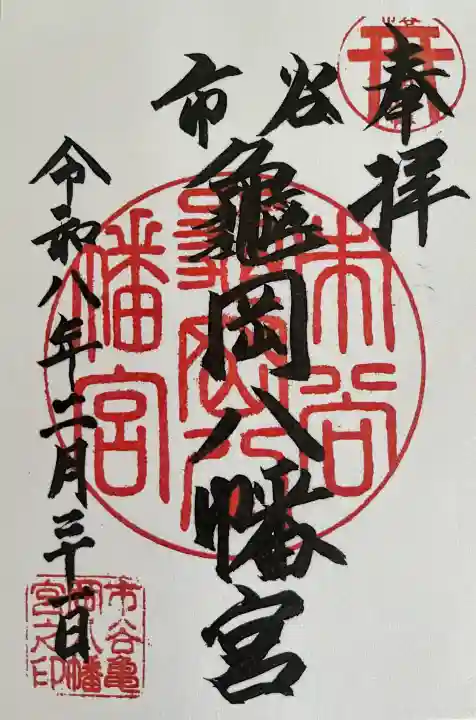 奉拝
市谷
龜岡八幡宮
令和八年月三十一日
市谷
龜岡八
幡宮
市谷亀
岡八幡
宮之印